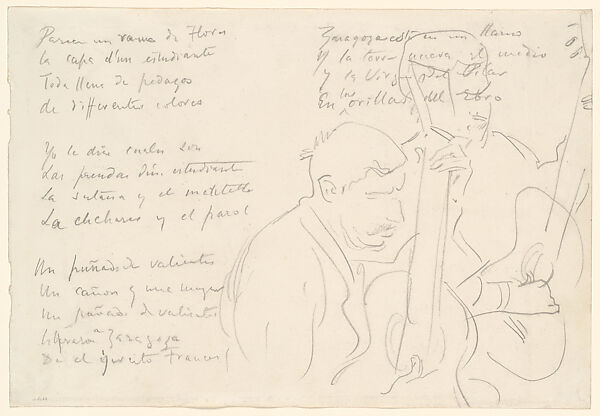 Parece un ramo de Flores
la capa d'un estudiante
Toda llena de pedazos
de differentes colores

Yo le dire cuales son
Las prendas d'un estudiante
La sutana y el
La chchara y el

Un puñado de valientes
Un cañon y una mujer
Un puñado de valientes
Zaragoza
De el ejercito Frances

Zaragoza está en un llano
Y la torre nueva el medio
Y la Virgen del Pilar
En las orillas del Ebro